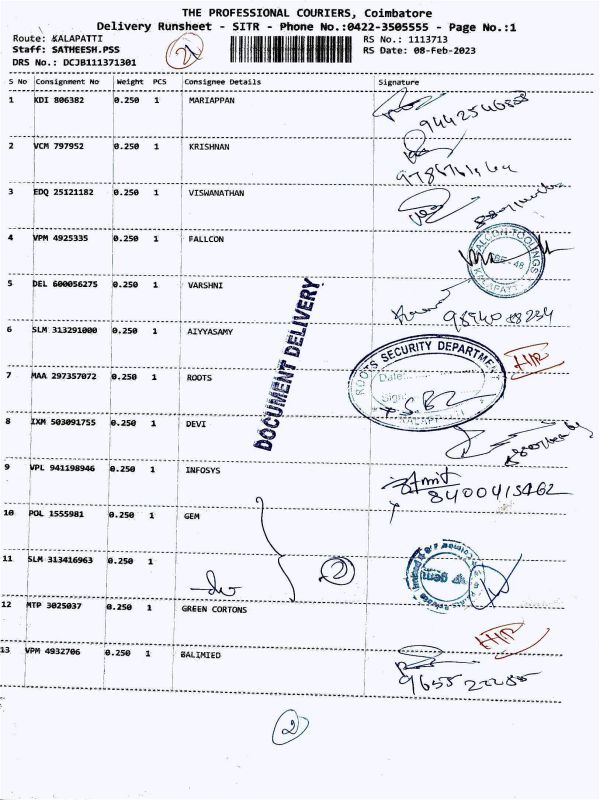 THE PROFESSIONAL COURIERS, Coimbatore
Delivery Runsheet - SITR - Phone No.:0422-3505555 - Page No.:1
Route: KALAPATTI
Staff: SATHEESH.PSS
DRS No.: DCJB111371301
21
RS No.: 1113713
RS Date: 08-Feb-2023
S No Consignment No Weight PCS Consignee Details Signature
1 KDI 806382 0.250 1 MARIAPPAN
2 VCM 797952 0.250 1 KRISHNAN
3 EDQ 25121182 0.250 1 VISWANATHAN
4 VPM 4925335 0.250 1 FALLCON
FALCON TOOLINGS
KALAPATTI
5 DEL 600056275 0.250 1 VARSHNI
DOCUMENT DELIVERY
6 SLM 313291000 0.250 1 AIYYASAMY
7 MAA 297357072 0.250 1 ROOTS
ROOTS SECURITY DEPARTMENT
Date:
Sign
KALAPPATTI
8 IXM 503091755 0.250 1 DEVI
9 VPL 941198946 0.250 1 INFOSYS
Amit
8400415462
10 POL 1555981 0.250 1 GEM
11 SLM 313416963 0.250 1
2
gem
12 MTP 3025037 0.250 1 GREEN CORTONS
13 VPM 4932706 0.250 1 BALIMIED
2